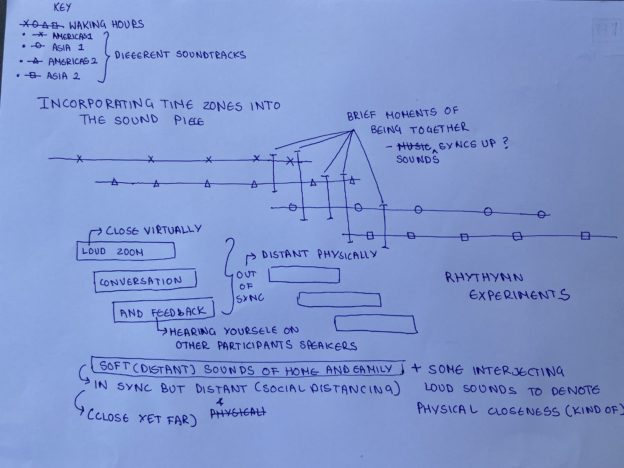 KEY
WAKING HOURS
AMERICAS 1
ASIA 1
AMERICAS 2
ASIA 2
DIFFERENT SOUNDTRACKS
INCORPORATING TIME ZONES INTO
THE SOUND PIECE
BRIEF MOMENTS OF
BEING TOGETHER
- MUSIC SYNCS UP?
SOUNDS
CLOSE VIRTUALLY
LOUD ZOOM
CONVERSATION
AND FEEDBACK
OUT
OF
SYNC
DISTANT PHYSICALLY
HEARING YOURSELF ON
OTHER PARTICIPANTS SPEAKERS
RHYTHYMN
EXPERIMENTS
SOFT (DISTANT) SOUNDS OF HOME AND FAMILY
IN SYNC BUT DISTANT (SOCIAL DISTANCING)
(CLOSE YET FAR) & PHYSICAL)
+ SOME INTERJECTING
LOUD SOUNDS TO DENOTE
PHYSICAL CLOSENESS (KIND OF)